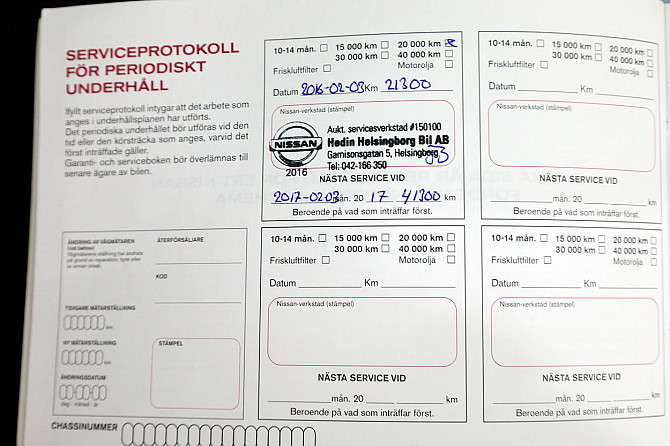 SERVICEPROTOKOLL
FÖR PERIODISKT
UNDERHÅLL
Ifyllt serviceprotokoll intygar att det arbete som
anges i underhållsplanen har utförts.
Det periodiska underhållet bör utföras vid den
tid eller den körsträcka som anges, varvid det
först inträffade gäller.
Garanti- och serviceboken bör överlämnas till
senare ägare av bilen.
10-14 mån. 15 000 km 20 000 km
30 000 km 40 000 km
Friskluftfilter Motorolja
Datum 2016-02-03 Km 21300
Nissan-verkstad (stämpel)
NISSAN
2016
Aukt. servicesverkstad #150100
Hedin Helsingborg Bil AB
Garnisonsgatan 5, Helsingborg
Tel: 042-166 350
NÄSTA SERVICE VID
2017-0203 mån. 20 17 41300 km
Beroende på vad som inträffar först.
10-14 mån. 15 000 km 20 000 km
30 000 km 40 000 km
Friskluftfilter Motorolja
Datum Km
Nissan-verkstad (stämpel)
NÄSTA SERVICE VID
mån. 20 km
Beroende på vad som inträffar först.
ÄNDRING AV VÄGMÄTAREN
(vid behov)
Vägmätarens ställning har ändrats
på grund av reparation, byte eller
av annan orsak.
ÅTERFÖRSÄLJARE
KOD
TIDIGARE MÄTARSTÄLLNING
km
NY MÄTARSTÄLLNING
km
ÄNDRINGSDATUM
dag - månad - år
STÄMPEL
10-14 mån. 15 000 km 20 000 km
30 000 km 40 000 km
Friskluftfilter Motorolja
Datum Km
Nissan-verkstad (stämpel)
NÄSTA SERVICE VID
mån. 20 km
Beroende på vad som inträffar först.
10-14 mån. 15 000 km 20 000 km
30 000 km 40 000 km
Friskluftfilter Motorolja
Datum Km
Nissan-verkstad (stämpel)
NÄSTA SERVICE VID
mån. 20 km
Beroende på vad som inträffar först.
CHASSINUMMER